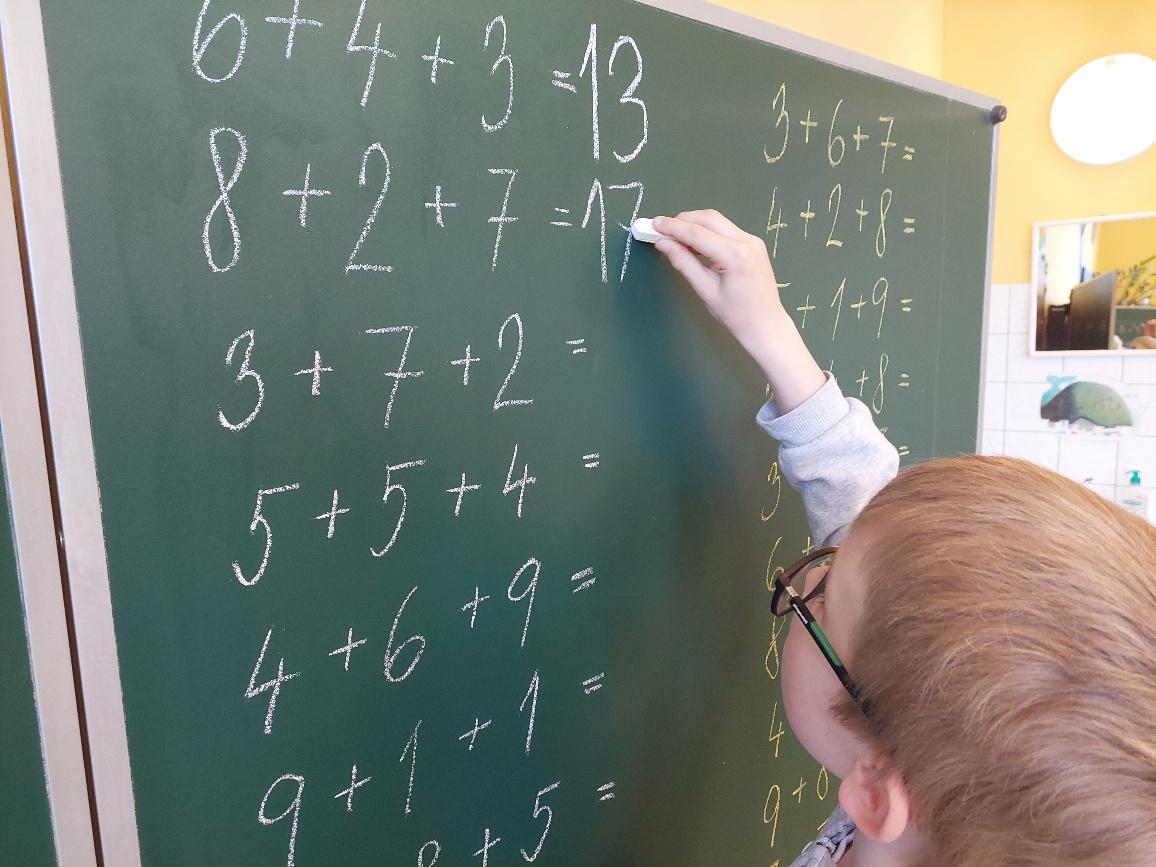 6 + 4 + 3 = 13
8 + 2 + 7 = 17
3 + 7 + 2 =
5 + 5 + 4 =
4 + 6 + 9 =
9 + 1 + 1 =
8 + 5 =
3 + 6 + 7 =
4 + 2 + 8 =
+ 1 + 9 =
+ 8 =
3 =
6 +
8
4
9 +